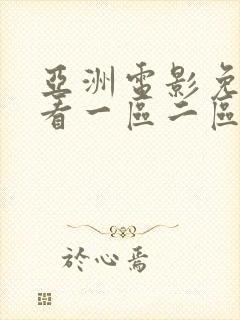 亞洲電影免
看一區二區
於心焉